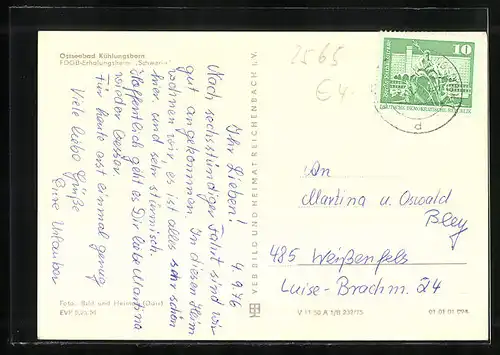 Ostseebad Kühlungsborn
FDGB-Erholungsheim „Schwerin"
2565
€4.
10
DEUTSCHE DEMOKRATISCHE REPUBLIK
d
4.9.76
Ihr Lieben!
Nach sechsstündiger Fahrt sind wir
gut angekommen. In diesen Heim
wohnen wir, es ist alles sehr schön
hier und sehr stürmisch.
Hoffentlich geht es Dir liebe Martina
wieder besser.
Für heute erst einmal genug
Viele liebe Grüße
Eure Urlauber
Foto: Bild und Heimat
EVP
VEB BILD UND HEIMAT REICHENBACH i. V.
An
Martina u. Oswald
Bley
485 Weißenfels
Luise-Brachm. 24
V 11 50 A 1/B 232/75
01 01 01 094